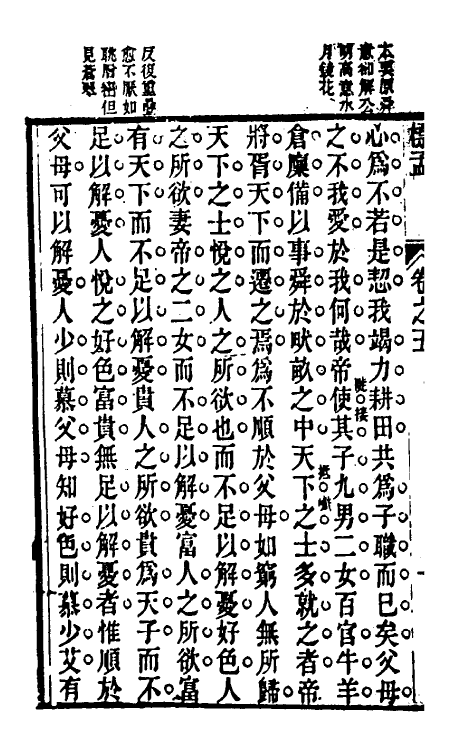 本要原舜
意卻解公
明高意水
月鏡花
反復重疊
愈不厭如
眺
見蒼翠
卷之五
心爲不若是恝我竭力耕田共爲子職而已矣父母
之不我愛於我何哉帝使其子九男二女百官牛羊
倉廩備以事舜於畎畝之中天下之士多就之者帝
將胥天下而遷之焉爲不順於父母如窮人無所歸
天下之士悅之人之所欲也而不足以解憂好色人
之所欲妻帝之二女而不足以解憂富人之所欲富
有天下而不足以解憂貴人之所欲貴爲天子而不
足以解憂人悅之好色富貴無足以解憂者惟順於
父母可以解憂人少則慕父母知好色則慕少艾有